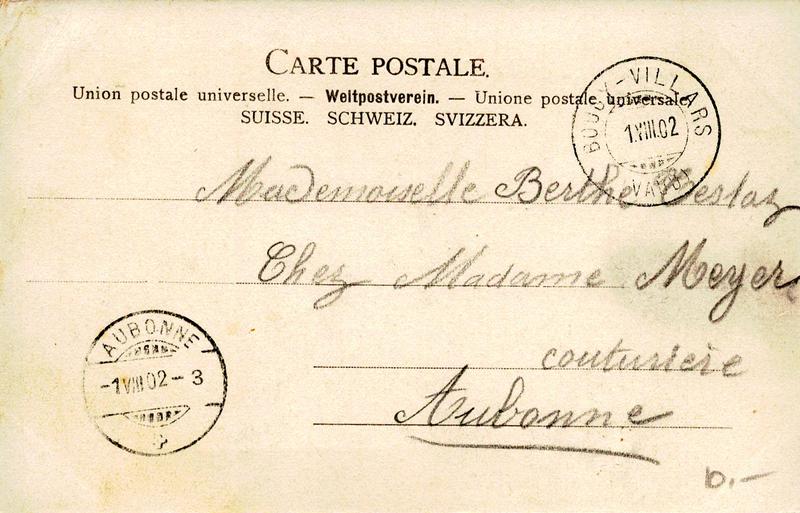 CARTE POSTALE.
Union postale universelle. — Weltpostverein. — Unione postale universale.
SUISSE. SCHWEIZ. SVIZZERA.
BOUGY-VILLARS
1.VIII.02
Mademoiselle Berthe
Chez Madame Meyer
couturière
Aubonne
AUBONNE
-1 VIII 02 - 3